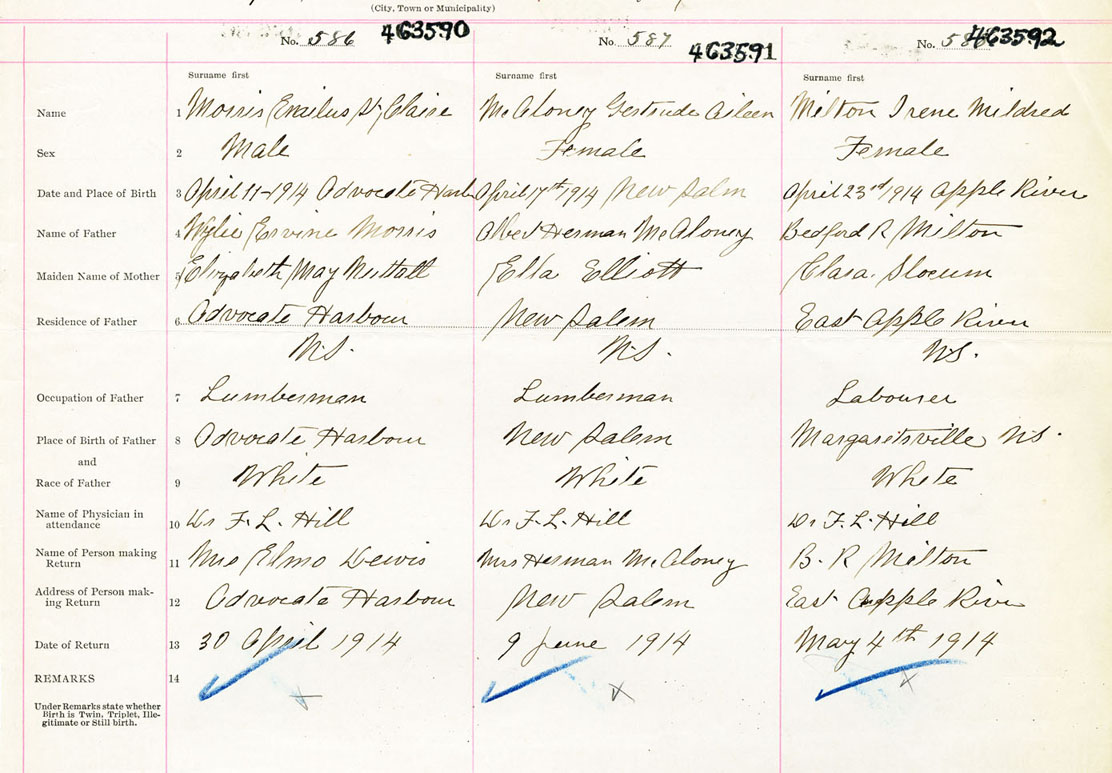 (City, Town or Municipality)
No. 586 463590 No. 587 463591 No. 463592
Surname first Surname first Surname first
Name 1 Morris Emilus St Claire McAloney Gertrude Aileen Milton Irene Mildred
Sex 2 Male Female Female
Date and Place of Birth 3 April 11-1914 Advocate Harb April 17th 1914 New Salm April 23rd 1914 Apple River
Name of Father 4 Wylie Ervine Morris Albert Herman McAloney Bedford R Milton
Maiden Name of Mother 5 Elizabeth May Nuttall Ella Elliott Clara Slocum
Residence of Father 6 Advocate Harbour New Salem East Apple River
N.S. N.S. N.S.
Occupation of Father 7 Lumberman Lumberman Labourer
Place of Birth of Father 8 Advocate Harbour New Salem Margaretsville N.S.
and
Race of Father 9 White White White
Name of Physician in
attendance 10 Dr F. L. Hill Dr F. L. Hill Dr F. L. Hill
Name of Person making
Return 11 Mrs Elmo Lewis Mrs Herman McAloney B. R Milton
Address of Person mak-
ing Return 12 Advocate Harbour New Salem East Apple River
Date of Return 13 30 April 1914 9 June 1914 May 4th 1914
REMARKS 14
Under Remarks state whether
Birth is Twin, Triplet, Ille-
gitimate or Still birth.